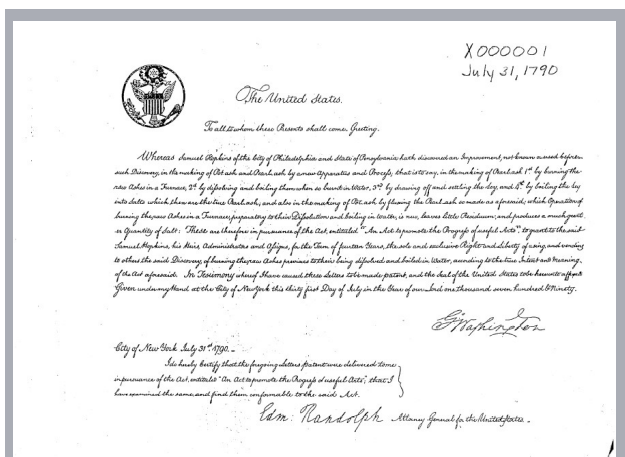 X000001
July 31, 1790
The United States.
To all to whom these Presents shall come, Greeting.
Whereas Samuel Hopkins of the City of Philadelphia and State of Pensylvania hath discovered an Improvement, not known or used before
such Discovery, in the making of Pot ash and Pearl ash by a new Apparatus and Process; that is to say, in the making of Pearl ash 1st by burning the
raw Ashes in a Furnace, 2d by dissolving and boiling them when so burnt in Water, 3rd by drawing off and settling the Ley, and 4th by boiling the Ley
into Salts which then are the true Pearl ash; and also in the making of Pot ash by fluxing the Pearl ash so made as aforesaid; which Operation of
burning the raw Ashes in a Furnace, preparatory to their Dissolution and boiling in Water, is new, leaves little Residuum; and produces a much great
er Quantity of Salt: These are therefore in pursuance of the Act, entituled "An Act to promote the Progress of useful Arts", to grant to the said
Samuel Hopkins, his Heirs, Administrators and Assigns, for the Term of fourteen Years, the sole and exclusive Right and Liberty of using and vending
to others the said Discovery, of burning the raw Ashes previous to their being dissolved and boiled in Water, according to the true Intent and Meaning
of the Act aforesaid. In Testimony whereof I have caused these Letters to be made patent, and the Seal of the United States to be hereunto affixed
Given under my Hand at the City of New York this thirty first Day of July in the Year of our Lord one thousand seven hundred & Ninety.
G Washington
City of New York July 31st 1790.
I do hereby Certify that the foregoing Letters patent were delivered to me
in pursuance of the Act, entituled "An Act to promote the Progress of useful Arts"; that I
have examined the same, and find them conformable to the said Act.
Edm: Randolph Attorney General for the United States.